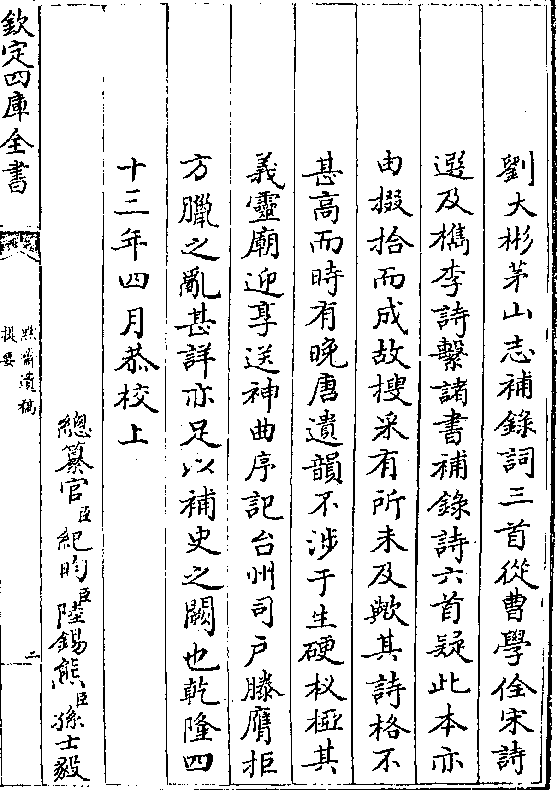 劉大彬茅山志補錄詞三首從曹學佺宋詩
選及檇李詩繫諸書補錄詩六首疑此本亦
由掇拾而成故搜采有所未及歟其詩格不
甚高而時有晚唐遺韻不涉于生硬杈椏其
義靈廟迎享送神曲序記台州司戶滕膺拒
方臘之亂甚詳亦足以補史之闕也乾隆四
十三年四月恭校上
總纂官臣紀昀臣陸錫熊臣孫士毅
欽定四庫全書
提要
二